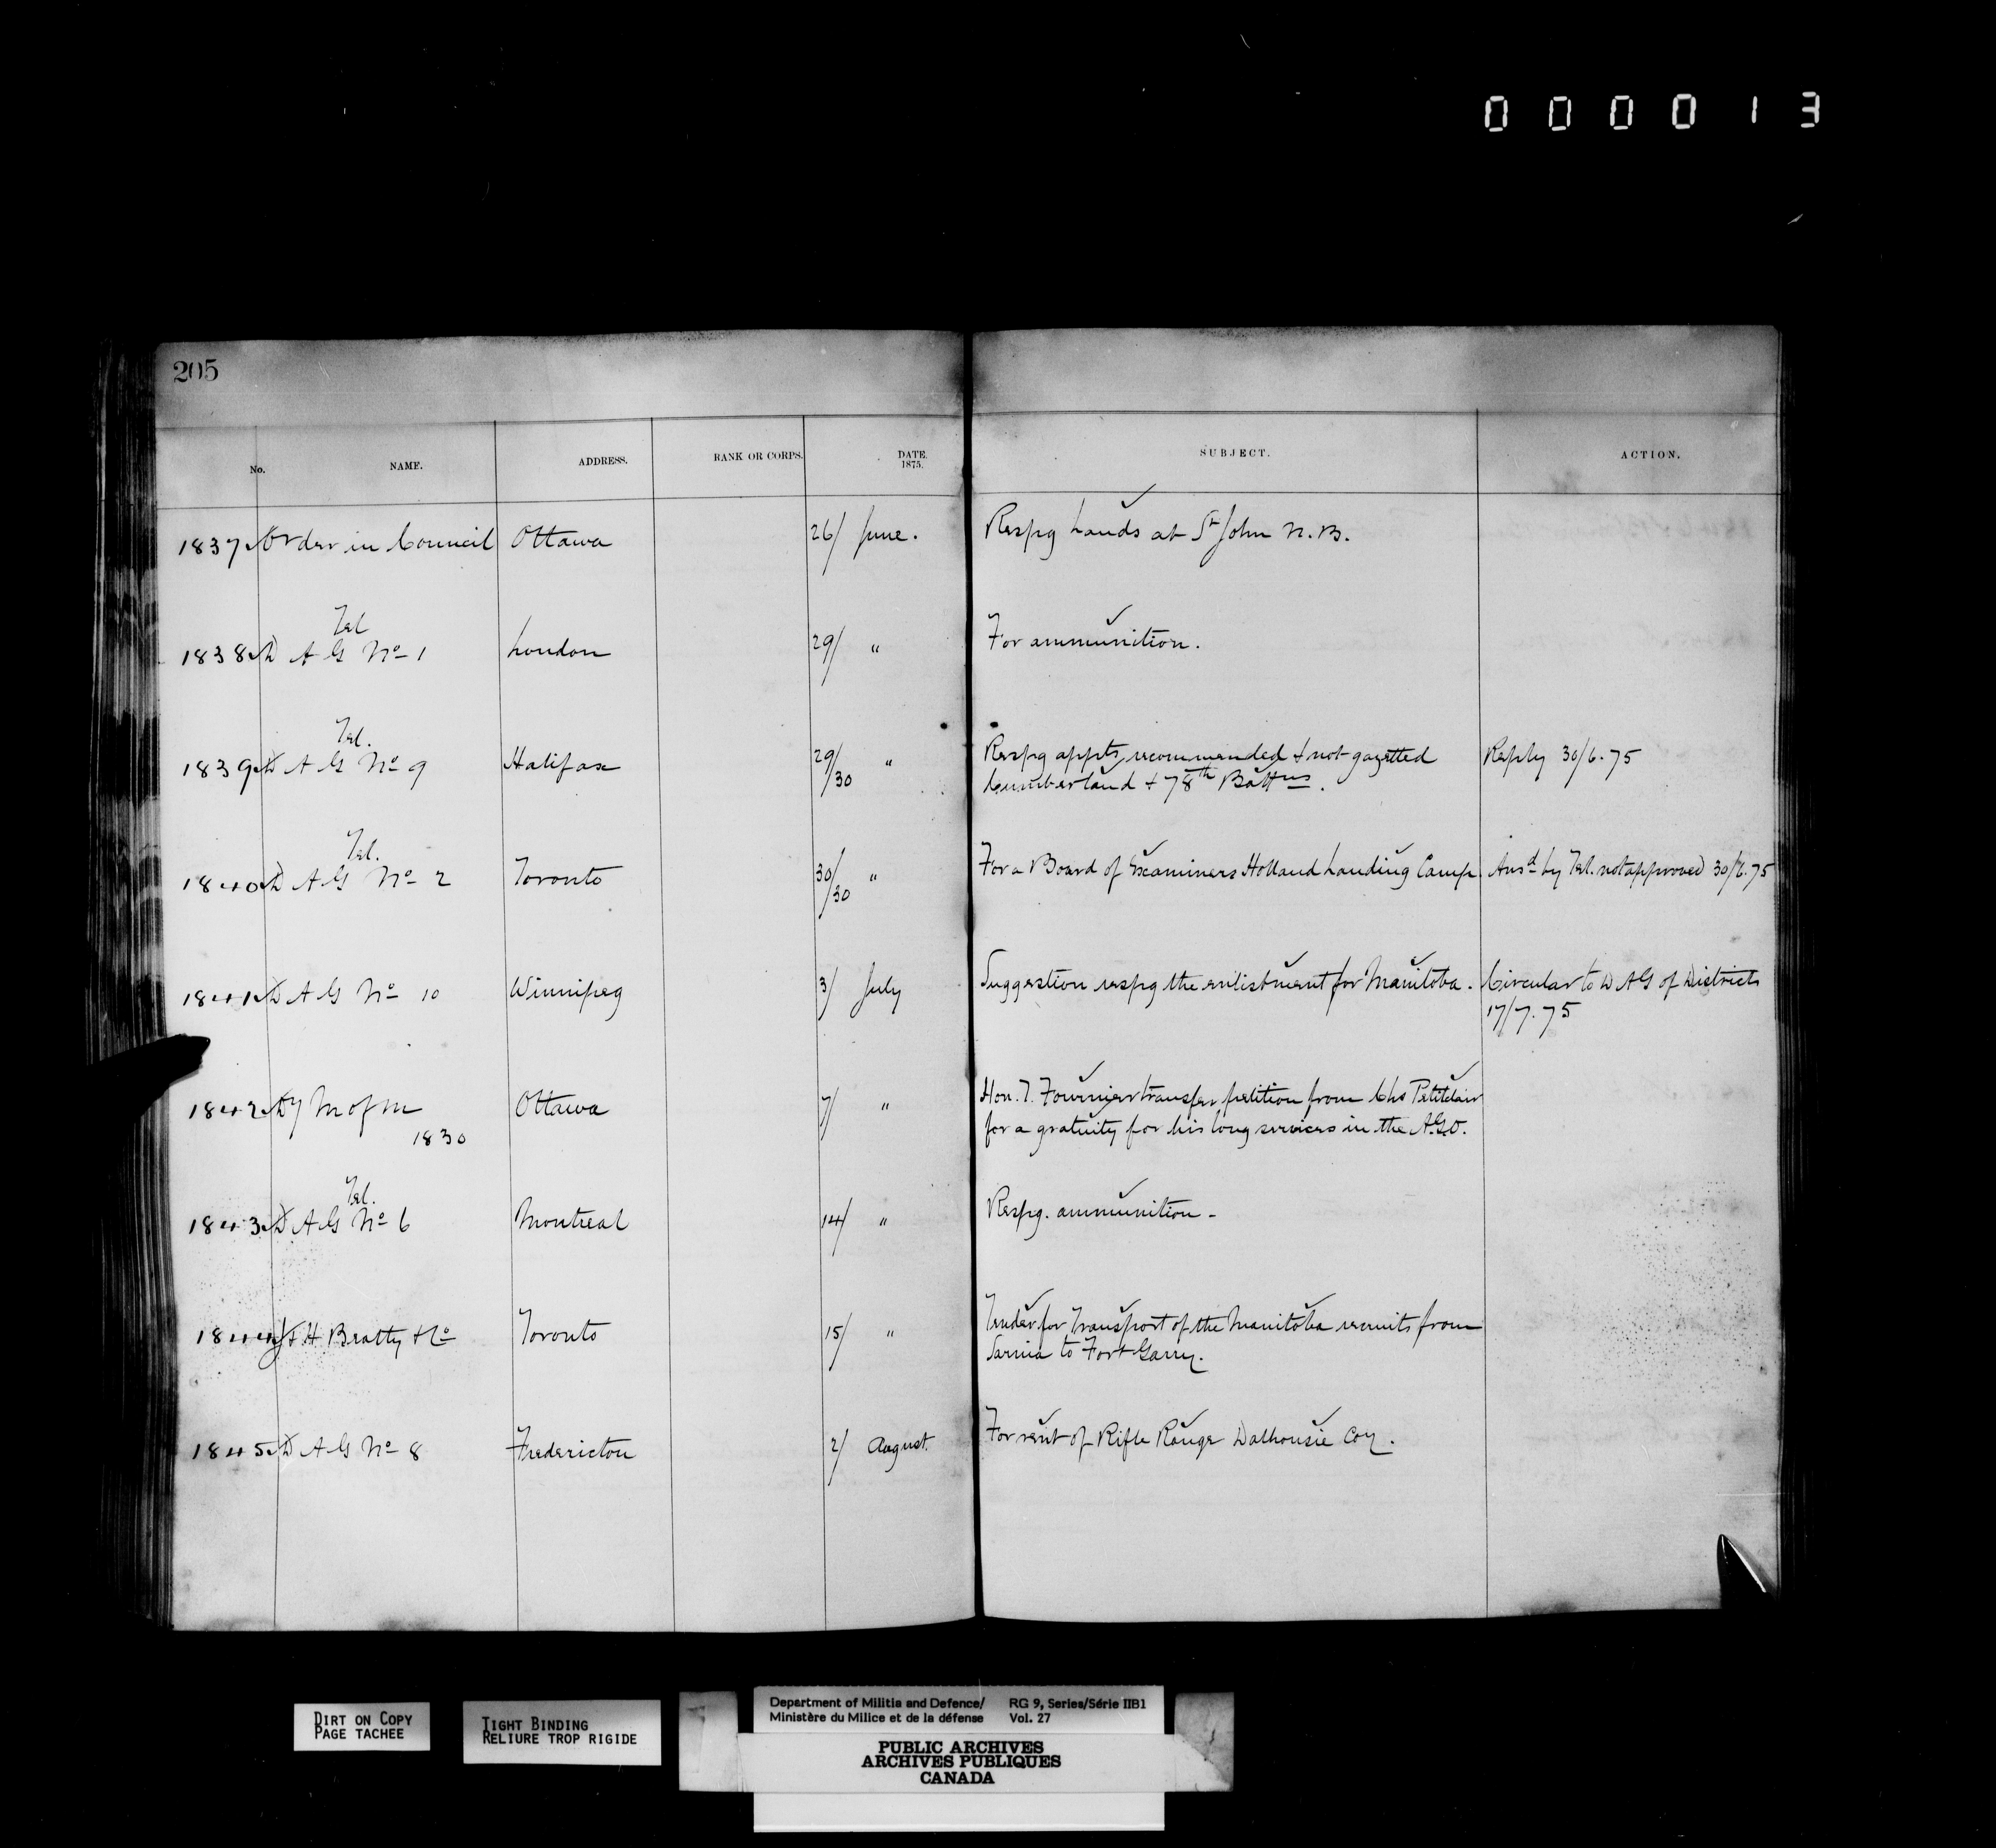 000013
205
No. NAME. ADDRESS. RANK OR CORPS. DATE. 1875. SUBJECT. ACTION.
1837 Order in Council Ottawa 26/ June. Respg Lands at St John N.B.
Tel
1838 D A G No 1 London 29/ " For ammunition.
Tel.
1839 D A G No 9 Halifax 29/30 " Respg appts, recommended & not gazetted Reply 30/6.75
Cumberland & 78th Battns.
Tel.
1840 D A G No 2 Toronto 30/30 " For a Board of Examiners Holland Landing Camp. Ansd by Tel. not approved 30/6.75
1841 D A G No 10 Winnipeg 3/ July Suggestion respg the enlistment for Manitoba. Circular to D A G of Districts
17/7.75
1842 Dy M of M Ottawa 7/ " Hon. T. Fournier transfer petition from Chs Petitclair
1830 for a gratuity for his long services in the A.G.O.
Tel.
1843 D A G No 6 Montreal 14/ " Respg. ammunition -
1844 J & H Beatty & Co Toronto 15/ " Tender for Transport of the Manitoba recruits from
Sarnia to Fort Garry.
1845 D A G No 8 Fredericton 2/ August. For rent of Rifle Range Dalhousie Coy.
DIRT ON COPY
PAGE TACHEE
TIGHT BINDING
RELIURE TROP RIGIDE
Department of Militia and Defence/ RG 9, Series/Série IIB1
Ministère du Milice et de la défense Vol. 27
PUBLIC ARCHIVES
ARCHIVES PUBLIQUES
CANADA